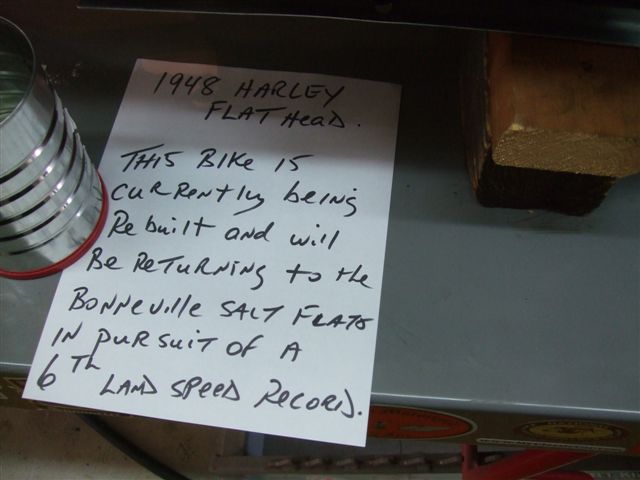 1948 HARLEY
FLAT HEAD.
THIS BIKE IS
CURRENTLY being
Rebuilt and will
Be RETURNING to the
BONNEVILLE SALT FLATS
IN PURSUIT OF A
6TH LAND SPEED RECORD.